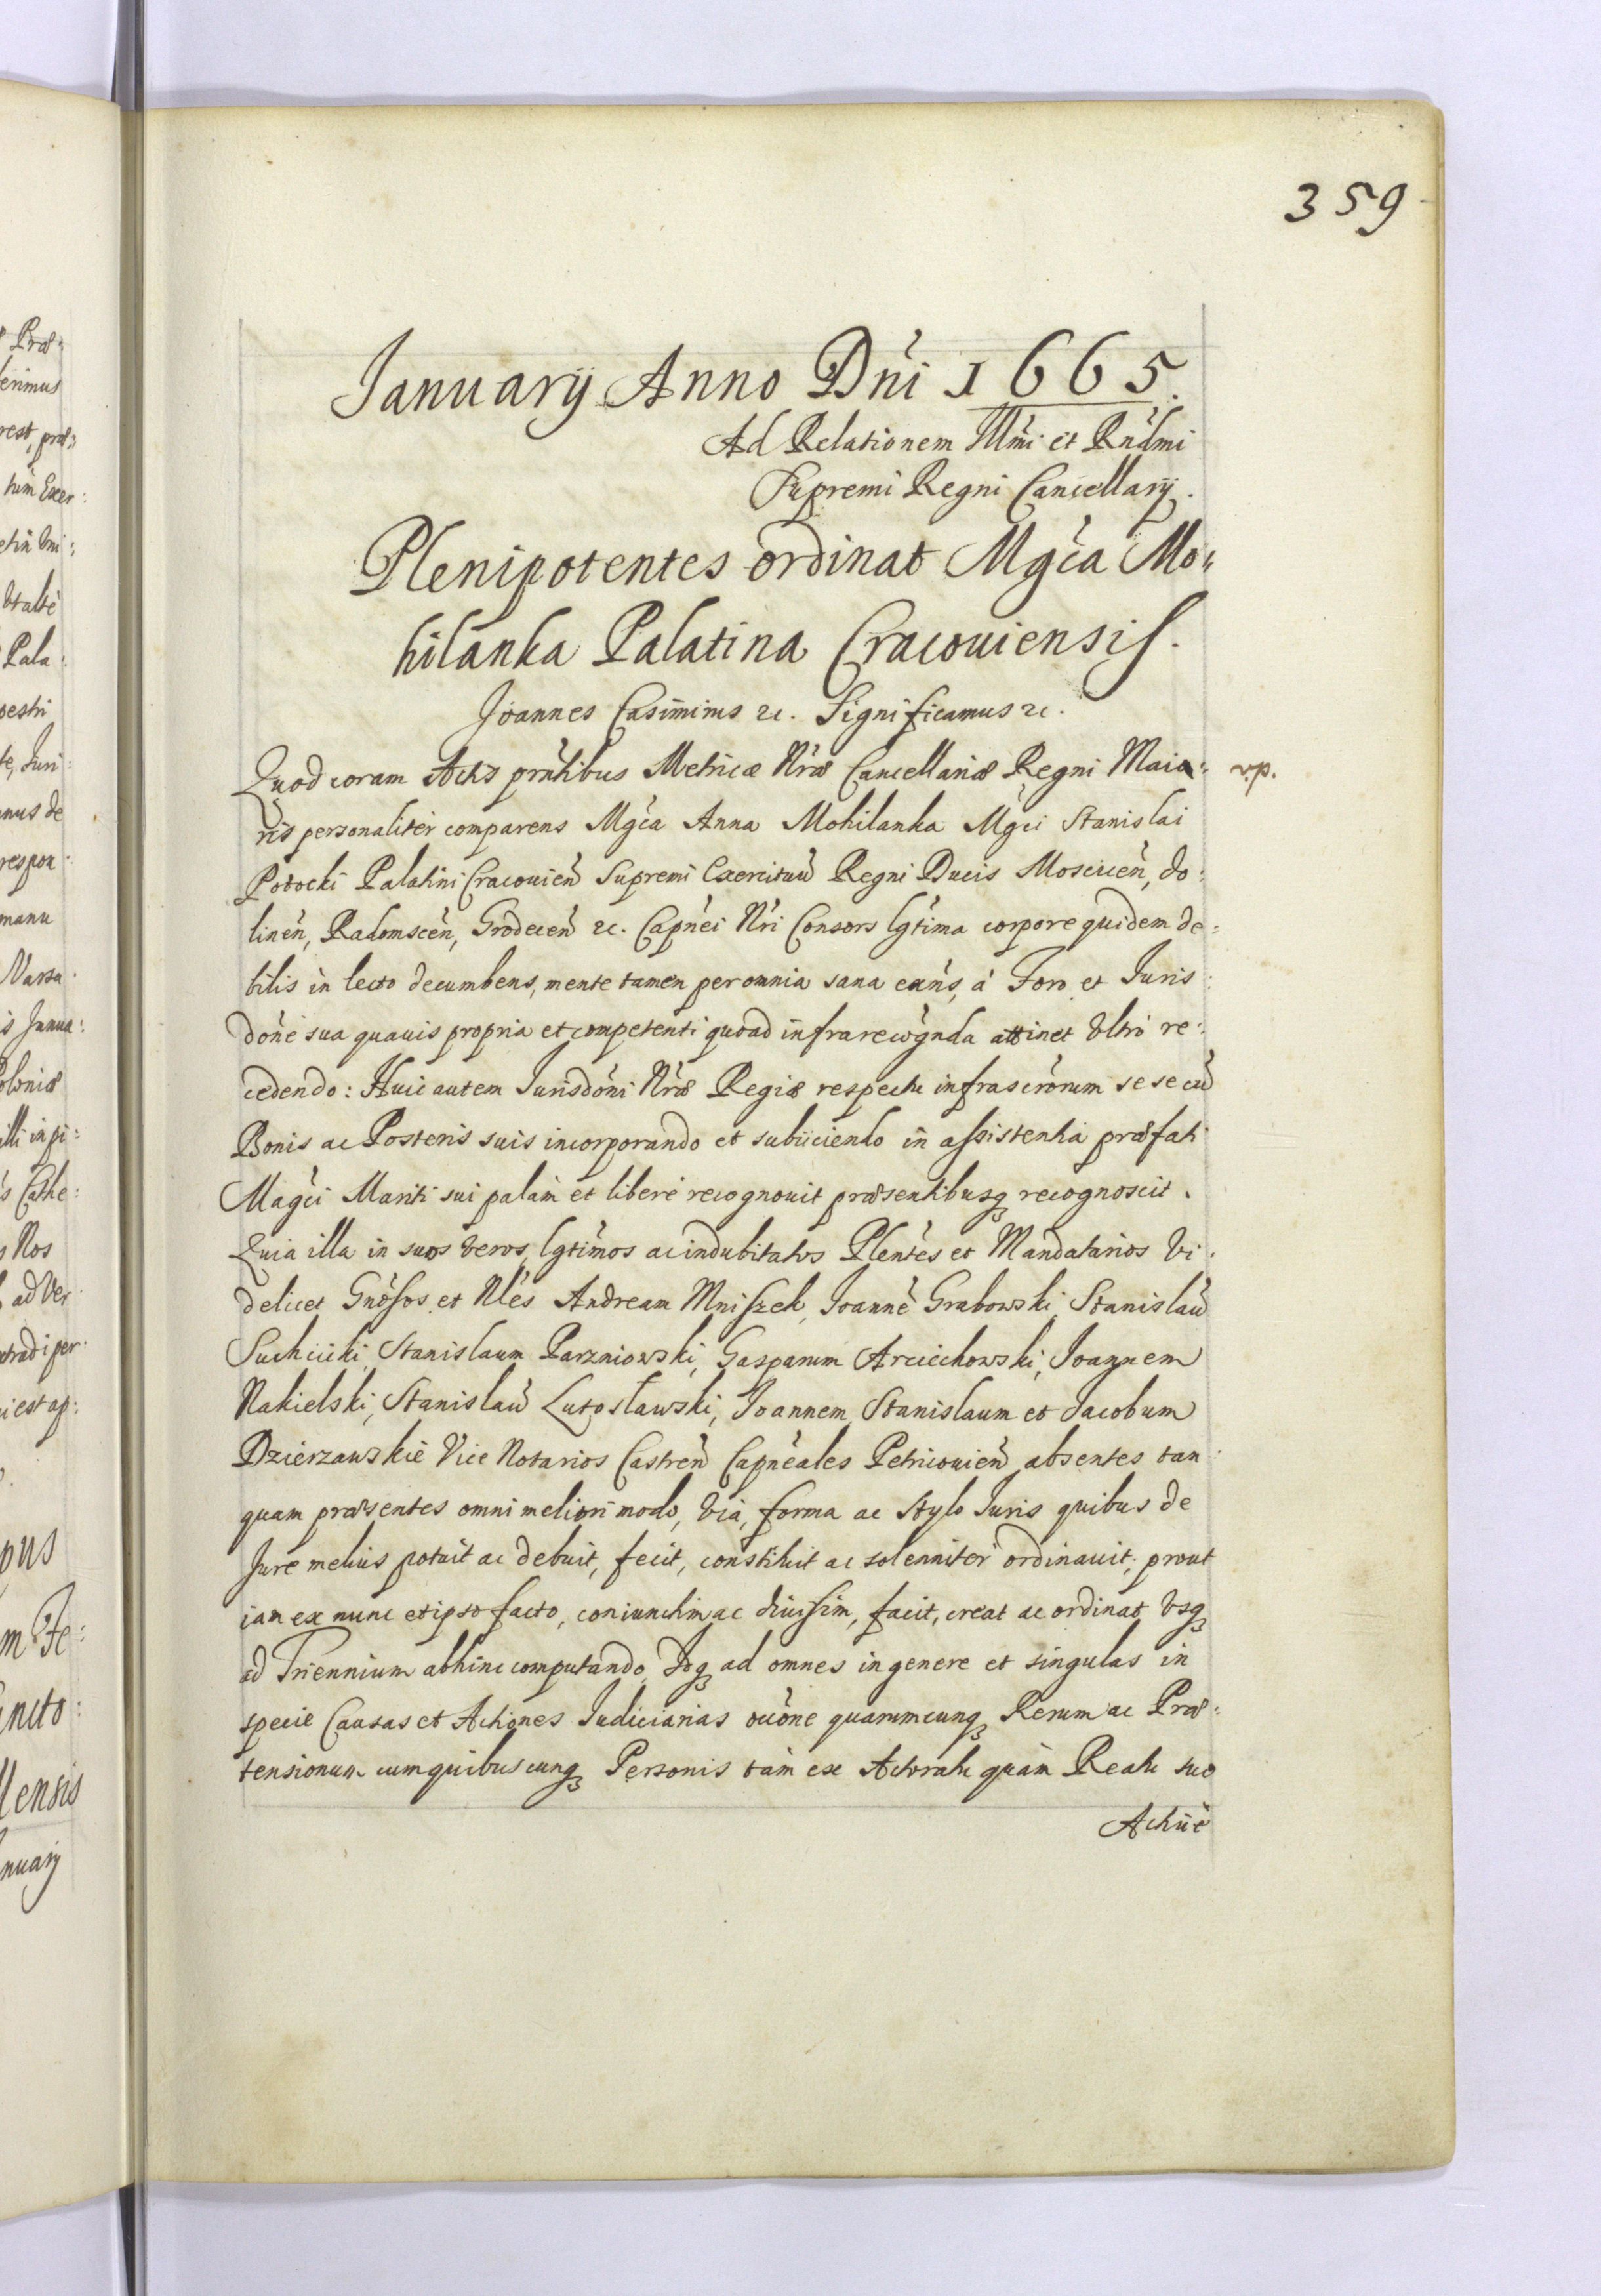 359
Januarij Anno Dńi 1665.
Ad Relationem Illḿi et Rńdmi
Supremi Regni Cancellarij.
Plenipotentes ordinat Mgća Mo„
hilanka Palatina Cracouiensis.
Joannes Casimirus &c. Significamus &c.
Quod coram Actis prńtibus Metricæ Nŕæ Cancellariæ Regni Maio: v.p.
ris personalitèr comparens Mgća Anna Mohilanka Mgći Stanislai
Potocki Palatini Cracouień Supremi Exercituũ Regni Ducis Mosciceń, do:
lineń, Radomsceń, Grodeceń &c. Capńei Nŕi Consors lgt́ima corpore quidem de:
bilis in lecto decumbens, mente tamen per omnia sana exńs, à Foro et Juris:
dońe sua quauis propria et competenti quoad infra recógnda attinet Vltrò re:
cedendo: Huic autem Jurisdońi Nŕæ Regiæ respectu infrascŕorum se se cũ
Bonis ac Posteris suis incorporando et subijciendo in assistentia præfati
Magći Mariti sui palàm et liberè recognouit præsentibusq3 recognoscit.
Quia illa in suos veros, lgt́imos ac indubitatos Plent́es et Mandatarios Vi:
delicet Gnósos et Nĺes Andream Mniszek, Joannẽ Grabowski, Stanislaũ
Suchcicki, Stanislaum Parzniowski, Gasparum Arciechowski, Joannem
Nakielski, Stanislaũ Lutosławski, Joannem, Stanislaum et Jacobum
Dzierzawskie Vice Notarios Castreń Capńeales Petricouień absentes tan
quam præsentes omni meliori modo, via, forma ac Stylo Juris quibus de
Jure melius potuit ac debuit, fecit, constituit ac solenniter ordinauit, prout
iam ex nunc et ipso facto, coniunctim ac diuisim, facit, creat ac ordinat Vsq3
ad Triennium abhinc computando, Idq3 ad omnes in genere et singulas in
specie Causas et Actiones Judiciarias ocćone quarumcunq3 Rerum ac Præ:
tensionum cum quibuscunq3 Personis tàm ex Actoratu quàm Reatu suo
Actiuè